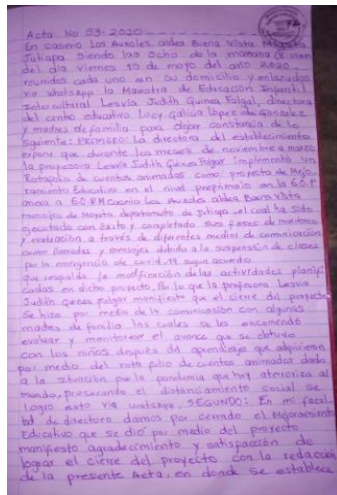 Acta No 53-2020
En caserío Los Ausoles aldea Buena Vista Moyuta
Jutiapa Siendo las Ocho de la mañana
del día viernes 15 de mayo del año 2020
reunidos cada uno en su domicilio y enlazados
via whatsApp la Maestra de Educación Infantil
Intercultural Lesvia Judith Guinea Folgal, directora
del cento educativo Lucy Galicia López de González
y madres de familia para dejar constancia de lo
siguiente: PRIMERO: La directora del establecimiento
expone que durante los meses de noviembre a marzo
la profesora Lesvia Judith Guinea Folgar implementó un
Rotafolio de cuentos animados como proyecto de Mejo
ramiento Educativo en el nivel preprimario en la E.O.P
anexa a E.O.R.M Caserío Los Ausoles aldea Buena Vista
municipio de Moyuta departamento de Jutiapa, el cual ha sido
ejecutado con éxito y completado sus fases de monitoreo
y evaluación a través de diferentes medios de comunicación
como llamadas y mensajes debido a la suspensión de clases
por la emergencia de covid-19 según acuerdo
que respalda la modificación de las actividades planifi
cadas en dicho proyecto, Por lo que la profesora Lesvia
Judith guinea folgar manifiesta que el cierre del proyecto
se hizo por medio de la comunicación con algunas
madres de familia las cuales se les encomendó
evaluar y monitorear el avance que se obtuvo
con los niños después del aprendizaje que adquirieron
por medio del rota folio de cuentos animados dado
a la situación por la pandemia que hoy aterroriza al
mundo, procurando el distanciamiento social se
logro esto via whatsApp. SEGUNDO: En mi facul
tad de directora damos por cerrado el Mejoramiento
Educativo que se dió por medio del proyecto
manifiesto agradecimiento y satisfacción de
lograr el cierre del proyecto con la redacción
de la presente Acta, en donde se establece